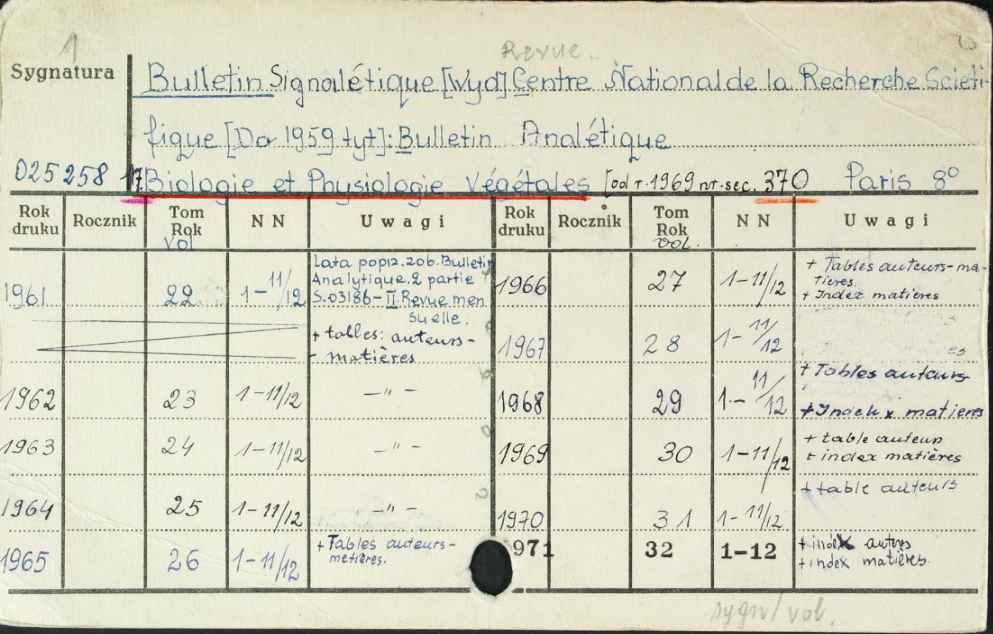 1
Revue.
Sygnatura
Bulletin Signalétique [Wyd] Centre National de la Recherche Scieti-
fique [Do 1959 tyt]: Bulletin Analétique
025258 17. Biologie et Physiologie Végétales [od r. 1969 nr. sec. 370 Paris 8°
Rok druku Rocznik Tom Rok vol N N Uwagi Rok druku Rocznik Tom Rok vol. N N Uwagi
1961 22 1-11/12 Lata poprz. zob. Bulletin
Analytique. 2 partie
S.03186-II. Revue men
suelle.
+ tables: auteurs-
- matières
1962 23 1-11/12 —"—
1963 24 1-11/12 —"—
1964 25 1-11/12 —"—
1965 26 1-11/12 + Tables auteurs-
metières.
1966 27 1-11/12 + Tables auteurs-ma-
tières.
+ Index matières
1967 28 1-11/12
1968 29 1-11/12 + Tables auteurs
+ Index matiers
1969 30 1-11/12 + table auteurs
+ index matières
1970 31 1-11/12 + table auteurs
971 32 1-12 + index autrs
+ index matières.
sygn/vol.